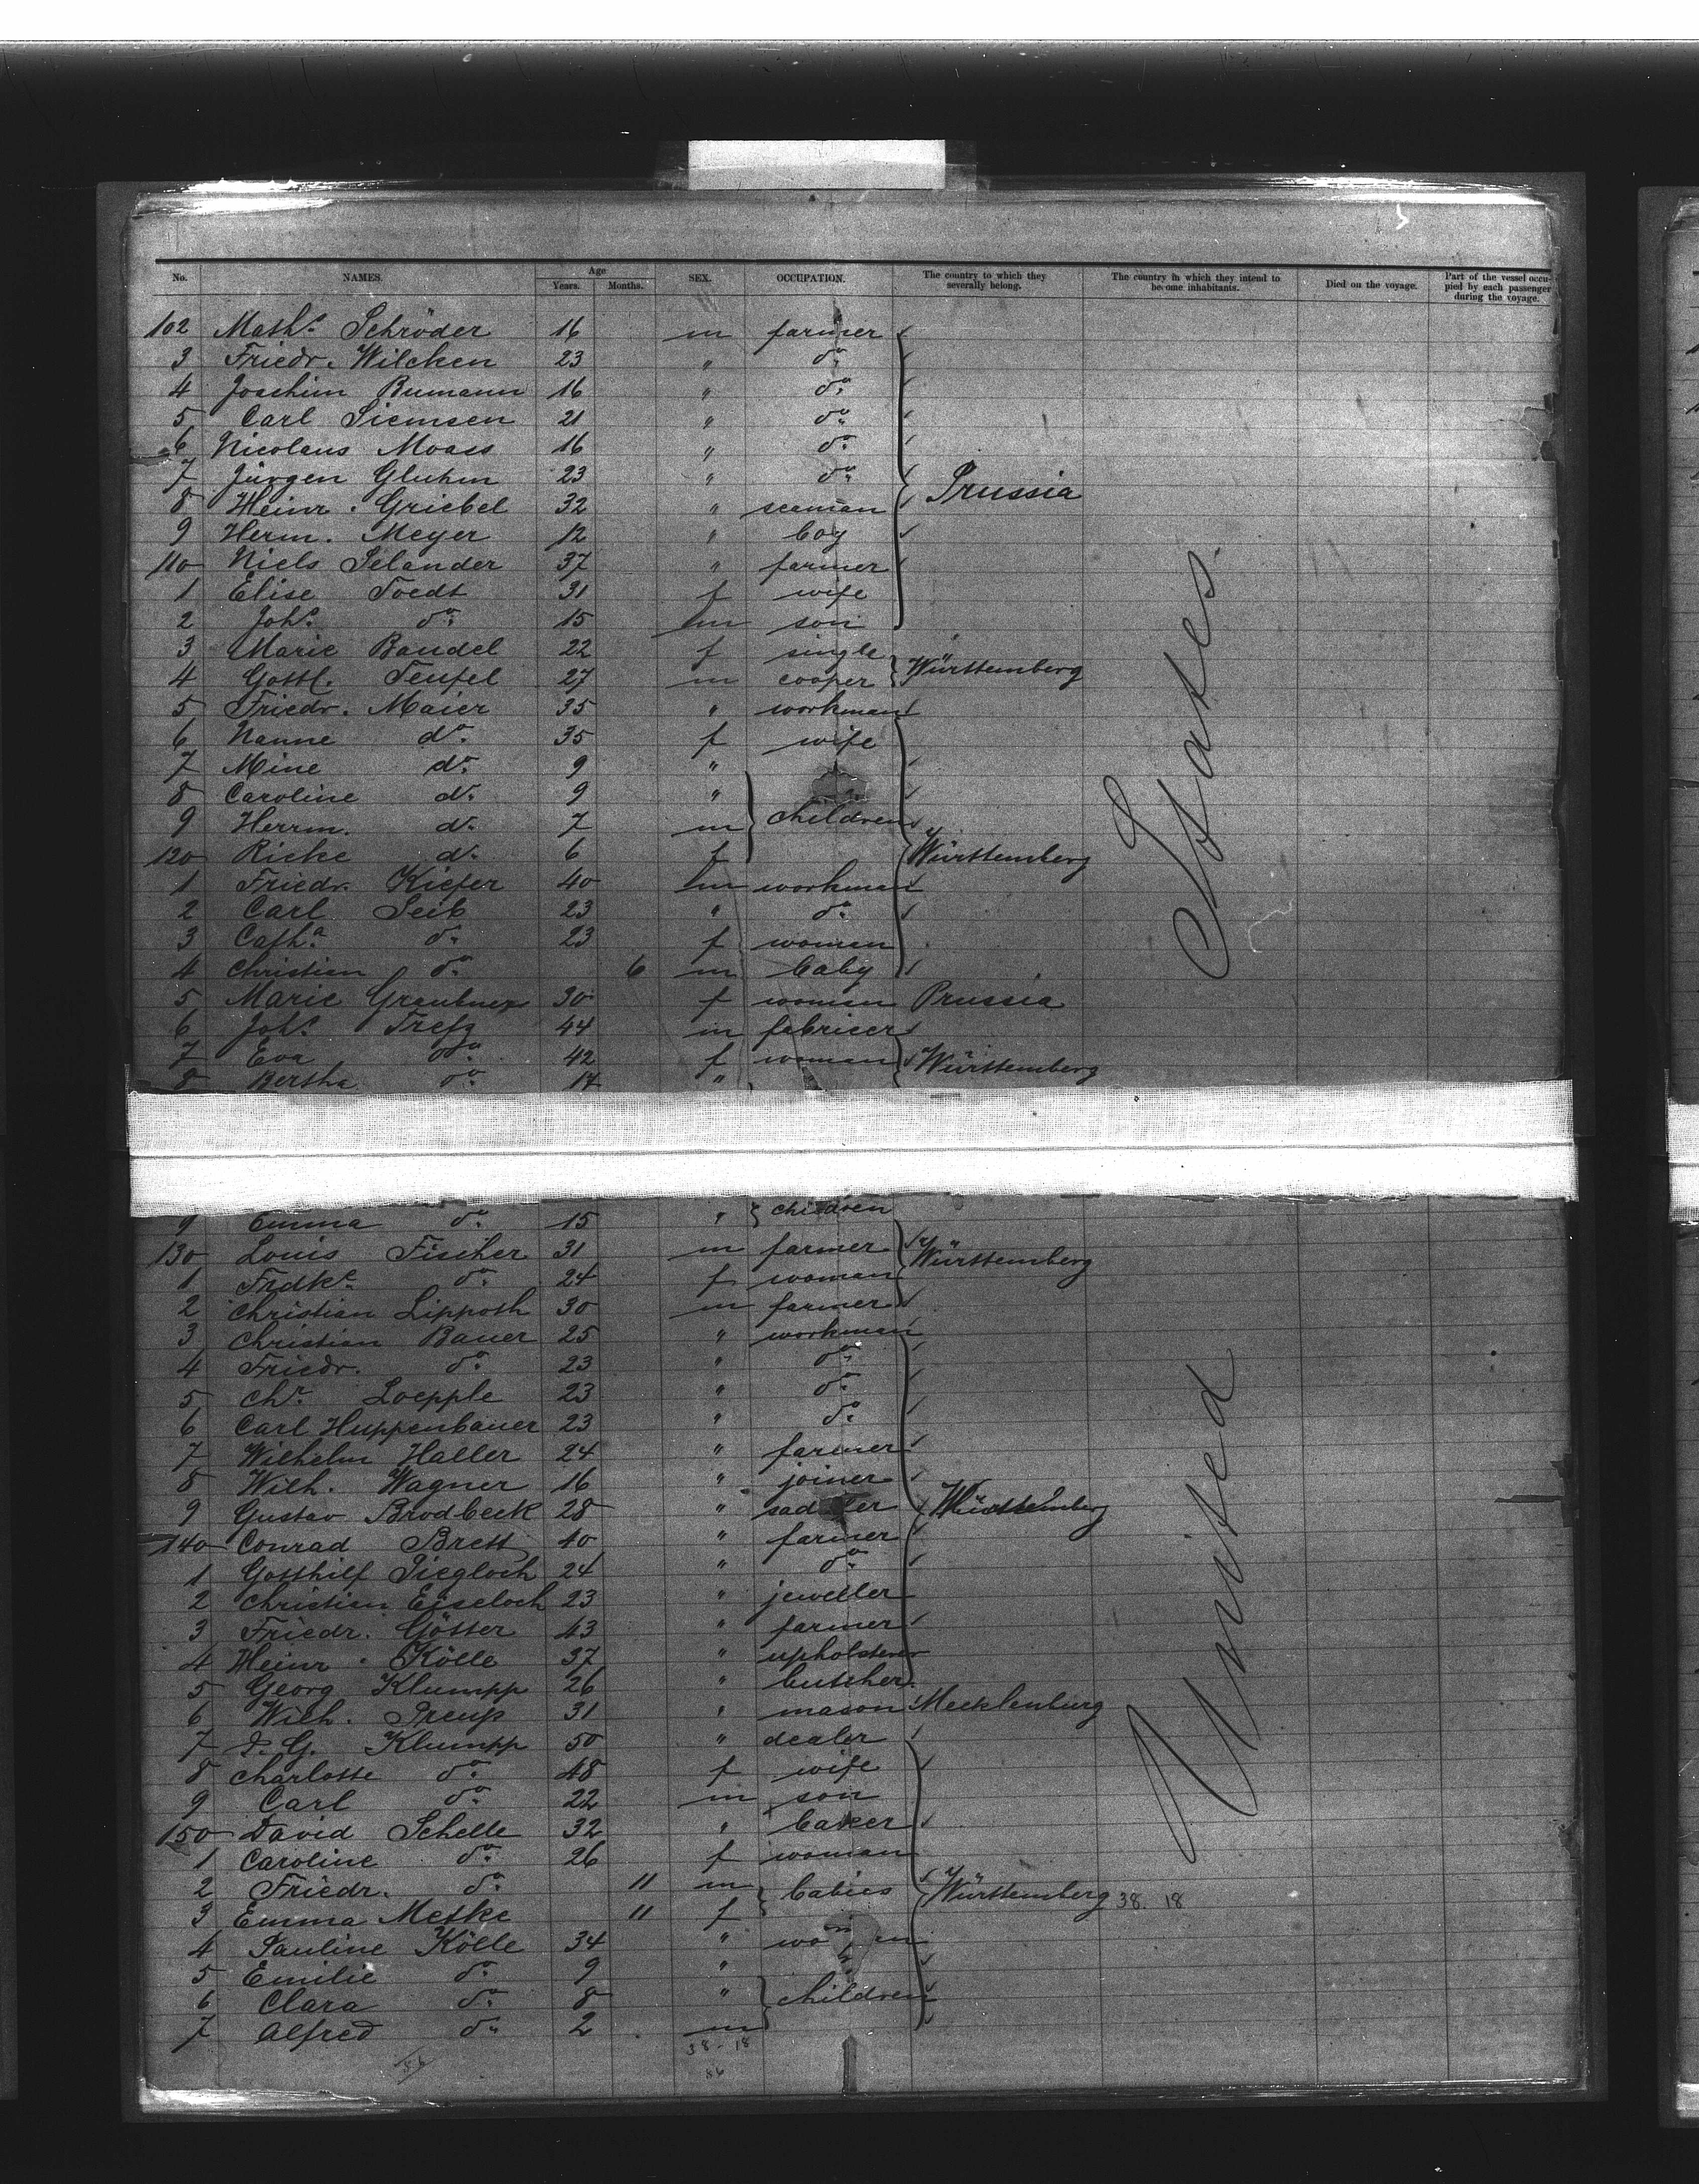 No. NAMES. Age Years. Months. SEX. OCCUPATION. The country to which they severally belong. The country in which they intend to become inhabitants. Died on the voyage. Part of the vessel occupied by each passenger during the voyage.
102 Mathˢ Schröder 16 m farmer
3 Friedr. Wilcken 23 " dº
4 Joachim Bumann 16 " dº
5 Carl Siemsen 21 " dº
6 Nicolaus Moass 16 " dº
7 Jürgen Gluhm 23 " dº
8 Heinr. Griebel 32 " seaman Prussia
9 Herm. Meyer 12 " boy
110 Niels Selander 37 " farmer
1 Elise Toedt 31 f wife
2 Johˢ dº 15 m son
3 Marie Bandel 22 f single
4 Gottl. Teufel 27 m cooper Württemberg
5 Friedr. Maier 35 " workman
6 Nanne dº 35 f wife
7 Mine dº 9 "
8 Caroline dº 9 "
9 Herrm. dº 7 m children
120 Ricke dº 6 f Württemberg
1 Friedr. Kiefer 40 m workman
2 Carl Seib 23 " dº
3 Cathª dº 23 f woman
4 Christian dº 6 m baby
5 Marie Graubner 30 f woman Prussia
6 Johˢ Trefz 44 m fabricer
7 Eva dº 42 f woman Württemberg
8 Bertha dº 17 "
9 Emma dº 15 " children
130 Louis Fischer 31 m farmer Württemberg
1 Frdkᵉ dº 24 f woman
2 Christian Lippoth 30 m farmer
3 Christian Bauer 25 " workman
4 Friedr. dº 23 " dº
5 Chr. Loepple 23 " dº
6 Carl Huppenbauer 23 " dº
7 Wilhelm Haller 24 " farmer
8 Wilh. Wagner 16 " joiner
9 Gustav Brodbeck 28 " sadler Württemberg
140 Conrad Brett 40 " farmer
1 Gotthilf Siegloch 24 " dº
2 Christian Eiseloch 23 " jeweller
3 Friedr. Götter 43 " farmer
4 Heinr. Kölle 37 " upholsterer
5 Georg Klumpp 26 " butcher
6 Wilh. Preup 31 " mason Mecklenburg
7 J. G. Klumpp 50 " dealer
8 Charlotte dº 48 f wife
9 Carl dº 22 m son
150 David Schelle 32 " baker
1 Caroline dº 26 f woman
2 Friedr. dº 11 m babies Württemberg 38. 18
3 Emma Metke 11 f
4 Pauline Kölle 34 " woman
5 Emilie dº 9 "
6 Clara dº 8 " children
7 Alfred dº 2 m
38-18
86
United States.